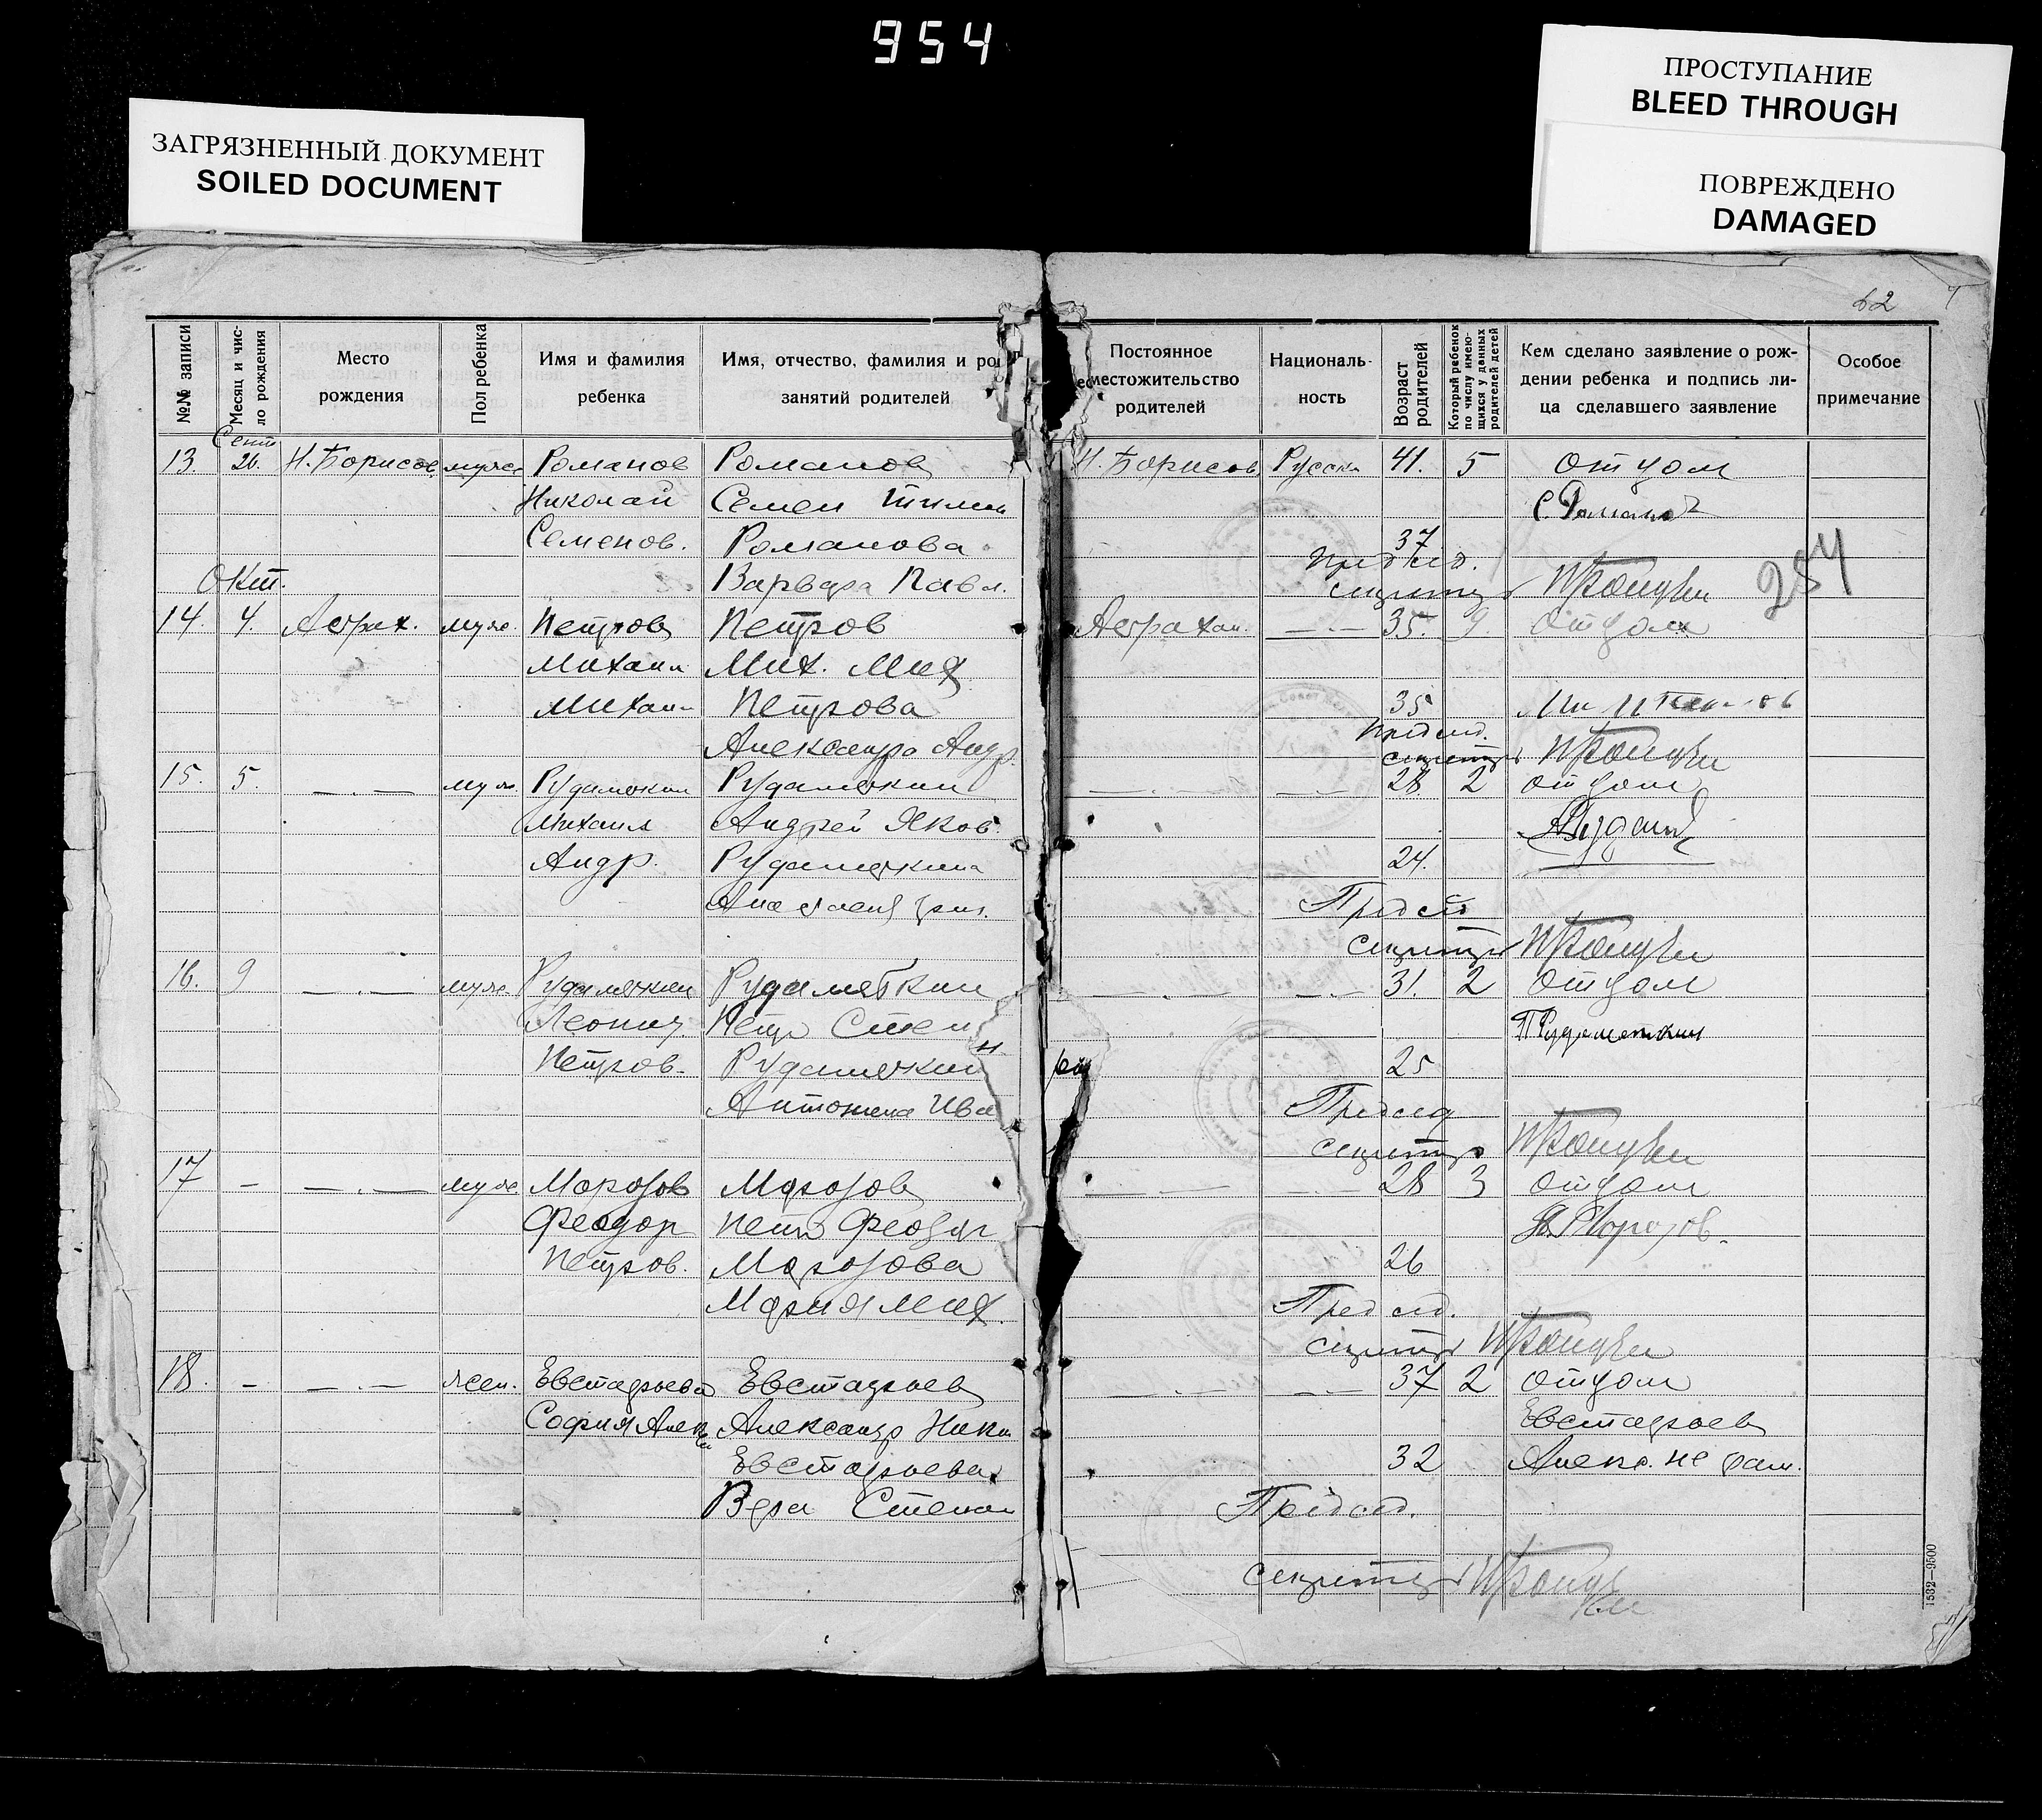 954
ЗАГРЯЗНЕННЫЙ ДОКУМЕНТ
SOILED DOCUMENT
ПРОСТУПАНИЕ
BLEED THROUGH
ПОВРЕЖДЕНО
DAMAGED
62
№№ записи
Месяц и чис-
ло рождения
Место
рождения
Пол ребенка
Имя и фамилия
ребенка
Имя, отчество, фамилия и ро
занятий родителей
Постоянное
местожительство
родителей
Националь-
ность
Возраст
родителей
Который ребенок
по числу имею-
щихся у данных
родителей детей
Кем сделано заявление о рож-
дении ребенка и подпись ли-
ца сделавшего заявление
Особое
примечание
Сент
13 26. Н. Борисов муж Романов Романов Н. Борисов Русск 41. 5 отцом
Николай Семен С. Романов
Семенов. Романова 37
Окт. Варвара Павл. Председ.
секретарь
284
14. 4. Астрах. муж. Петров Петров Астрахан. —·— 35. 9. отцом
Михаил Мих. Мих
Михаил Петрова 35
Александра Андр. Председ.
секретарь
15. 5. —·— муж. Рудаметкин Рудаметкин —·— —·— 28 2 отцом
Михаил Андрей Яков.
Андр. Рудаметкина 24.
Председ
секретарь
16. 9 —·— муж. Рудаметкин Рудаметкин —·— —·— 31. 2 отцом
Леонид Петр Степ П Рудаметкин
Петров. Рудаметкин 25
Антонина Ива Председ
секретарь
17 – —·— муж. Морозов Морозов —·— —·— 28 3 отцом
Феодор Петр Феодор П. Морозов.
Петров. Морозова 26
Мария Мих. Председ.
секретарь
18. – —·— жен. Евстафьева Евстафьев —·— —·— 37 2 отцом
София Алек Александр Ники Евстафьев
Евстафьева 32 Алекс. не гам.
Вера Степан Председ.
секретарь
1532—9500